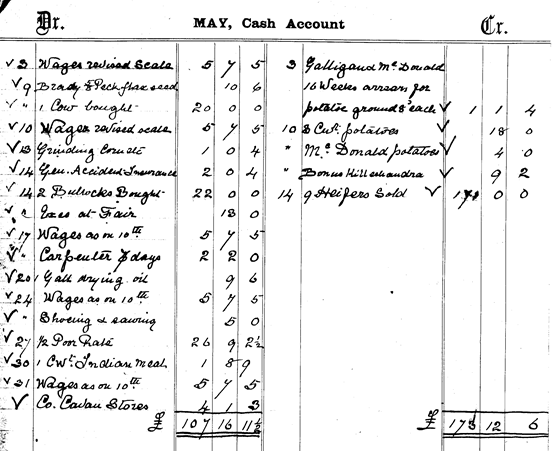 Dr. MAY, Cash Account Cr.
√ 3 Wages revised scale 5 7 5
√ 9 Brady & Peck flax seed 10 6
√ " 1 Cow bought 20 0 0
√ 10 Wages revised scale 5 7 5
√ 13 Grinding corn etc 1 0 4
√ 14 Gen. Accident Insurance 2 0 4
√ 14 2 Bullocks Bought 22 0 0
√ " Exes at Fair 13 0
√ 17 Wages as on 10th 5 7 5
√ " Carpenter days 2 2 0
√ 20 1 Gall drying oil 9 6
√ 24 Wages as on 10th 5 7 5
√ " Shoeing & sawing 5 0
√ 27 ½ Poor Rate 26 9 2½
√ 30 1 Cwt. Indian Meal 1 8 9
√ 31 Wages as on 10th 5 7 5
√ Co. Cavan Stores 4 1 3
£ 107 16 11½
3 Galligan & Mc Donald
16 Weeks arrears for
potatoe ground 8d each √ 1 1 4
10 3 Cwt. potatoes √ 18 0
" Mc Donald potatoes √ 4 0
" Bonus Hill √ 9 2
14 9 Heifers Sold √ 171 0 0
£ 173 12 6